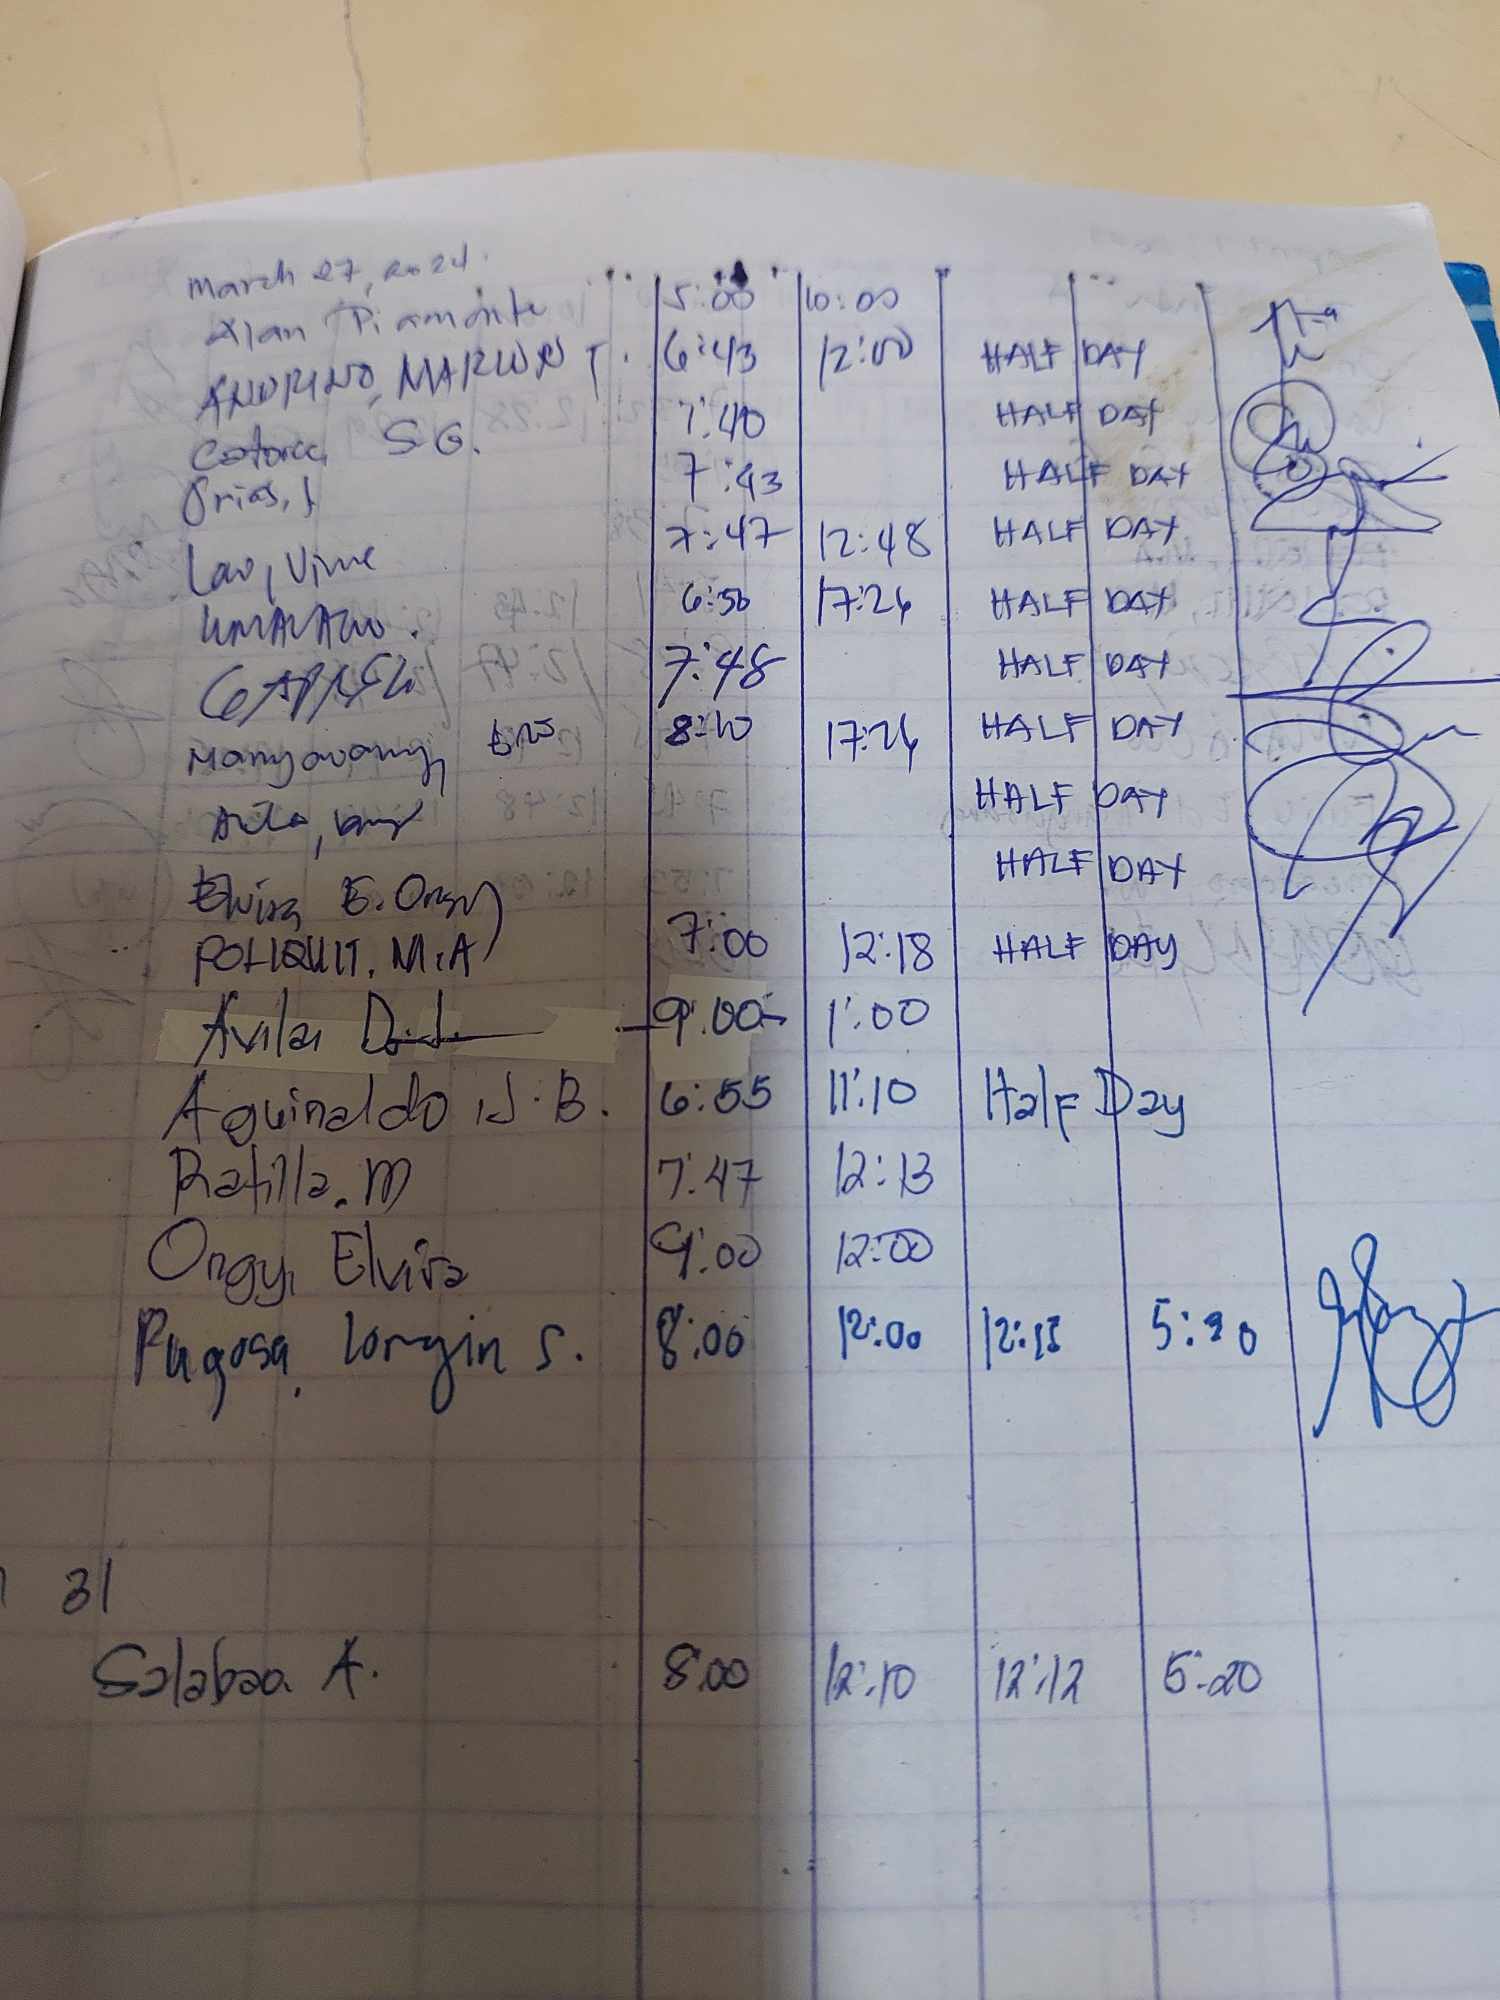 March 27, 2024.
Alan Piamonte 5:00 10:00
ANORINO, MARLON T. 6:43 12:00 HALF DAY
S G. 7:40 HALF DAY
Orias, J 7:43 HALF DAY
Lao, Vime 7:47 12:48 HALF DAY
6:50 17:26 HALF DAY
7:48 HALF DAY
8:10 17:26 HALF DAY
HALF DAY
Elvira E. Ongy HALF DAY
POLIQUIT, M.A 7:00 12:18 HALF DAY
Avila, D.J. 9:00 1:00
Aguinaldo, J. B. 6:55 11:10 Half Day
Ratilla, M 7:47 12:13
Ongy, Elvira 9:00 12:00
Pugosa, Longin S. 8:00 12:00 12:15 5:30
31
Salabao A. 8:00 12:10 12:12 5:20